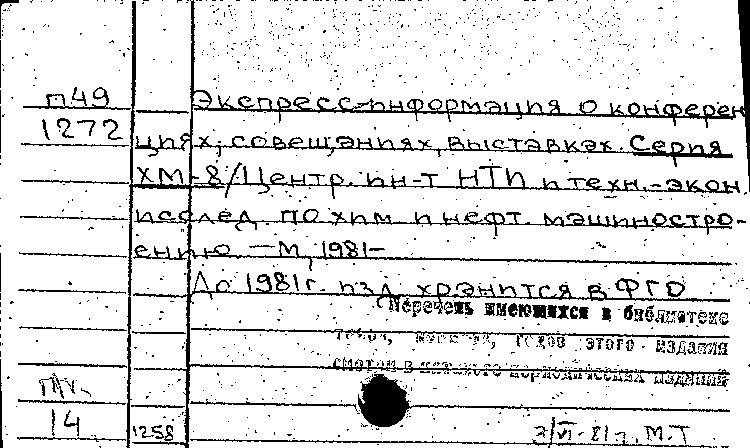 П49
1272
Экспресс-информация о конферен
циях, совещаниях, выставках. Серия
ХМ-8/Центр. ин-т НТИ и техн.-экон.
исслед. по хим. и нефт. машиностро-
ению. — М, 1981-
До 1981г. изд. хранится в ФГО
Перечень имеющихся в библиотеке
годов этого издания
смотри в каталоге периодических изданий
14
1258
VI-81г. М.Т